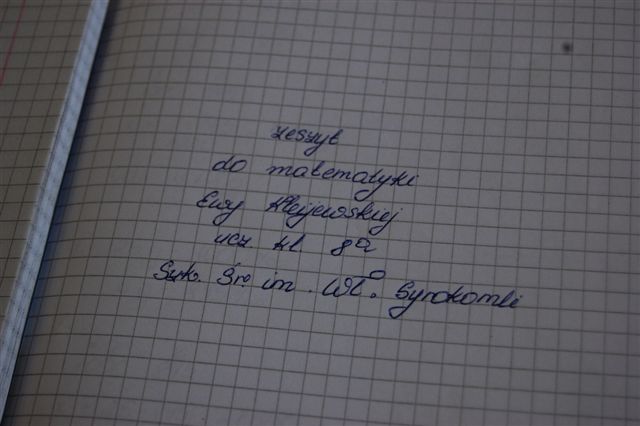 zeszyt
do matematyki
Ewy Klejewskiej
ucz kl. 8a
Szk. Śr. im. Wł. Syrokomli